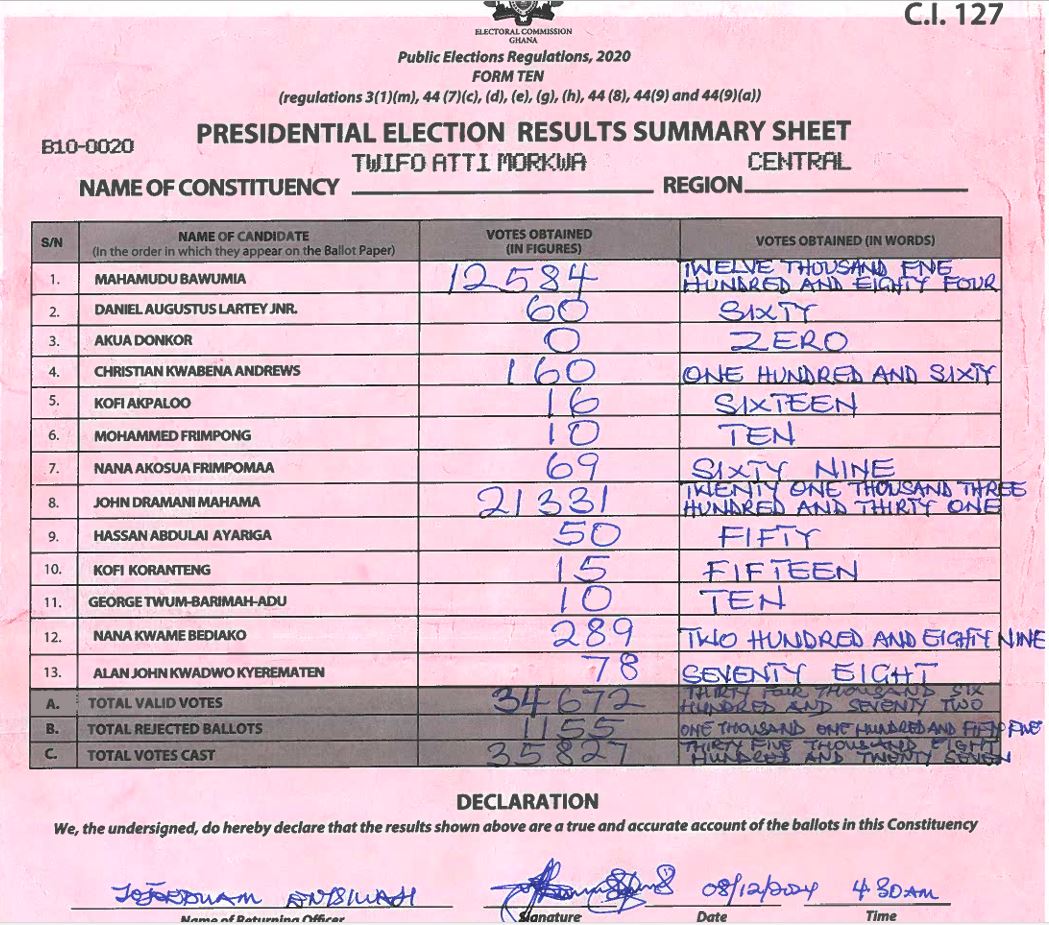 ELECTORAL COMMISSION
GHANA
C.I. 127
Public Elections Regulations, 2020
FORM TEN
(regulations 3(1)(m), 44 (7)(c), (d), (e), (g), (h), 44 (8), 44(9) and 44(9)(a))
PRESIDENTIAL ELECTION RESULTS SUMMARY SHEET
B10-0020
TWIFO ATTI MORKWA CENTRAL
NAME OF CONSTITUENCY REGION
S/N NAME OF CANDIDATE (In the order in which they appear on the Ballot Paper) VOTES OBTAINED (IN FIGURES) VOTES OBTAINED (IN WORDS)
1. MAHAMUDU BAWUMIA 12584 TWELVE THOUSAND FIVE
HUNDRED AND EIGHTY FOUR
2. DANIEL AUGUSTUS LARTEY JNR. 60 SIXTY
3. AKUA DONKOR 0 ZERO
4. CHRISTIAN KWABENA ANDREWS 160 ONE HUNDRED AND SIXTY
5. KOFI AKPALOO 16 SIXTEEN
6. MOHAMMED FRIMPONG 10 TEN
7. NANA AKOSUA FRIMPOMAA 69 SIXTY NINE
8. JOHN DRAMANI MAHAMA 21331 TWENTY ONE THOUSAND THREE
HUNDRED AND THIRTY ONE
9. HASSAN ABDULAI AYARIGA 50 FIFTY
10. KOFI KORANTENG 15 FIFTEEN
11. GEORGE TWUM-BARIMAH-ADU 10 TEN
12. NANA KWAME BEDIAKO 289 TWO HUNDRED AND EIGHTY NINE
13. ALAN JOHN KWADWO KYEREMATEN 78 SEVENTY EIGHT
A. TOTAL VALID VOTES 34672 THIRTY FOUR THOUSAND SIX
HUNDRED AND SEVENTY TWO
B. TOTAL REJECTED BALLOTS 1155 ONE THOUSAND ONE HUNDRED AND FIFTY FIVE
C. TOTAL VOTES CAST 35827 THIRTY FIVE THOUSAND EIGHT
HUNDRED AND TWENTY SEVEN
DECLARATION
We, the undersigned, do hereby declare that the results shown above are a true and accurate account of the ballots in this Constituency
08/12/2024 4:30AM
Name of Returning Officer Signature Date Time